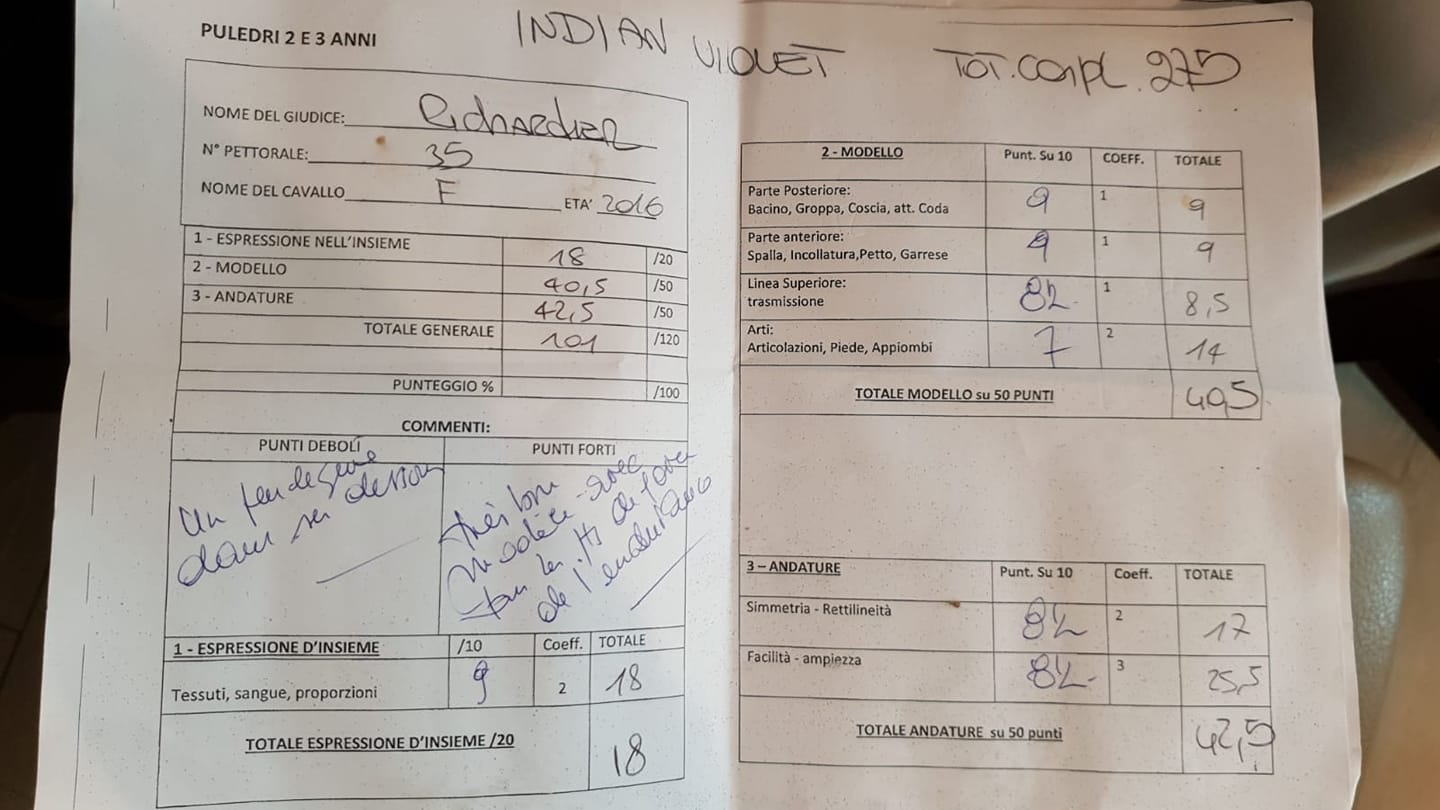 PULEDRI 2 E 3 ANNI
INDIAN VIOLET TOT. COMPL. 275
NOME DEL GIUDICE: Richardier
N° PETTORALE: 35
NOME DEL CAVALLO F ETA' 2016
1 - ESPRESSIONE NELL'INSIEME 18 /20
2 - MODELLO 40,5 /50
3 - ANDATURE 42,5 /50
TOTALE GENERALE 101 /120
PUNTEGGIO % /100
COMMENTI:
PUNTI DEBOLI PUNTI FORTI
Un peu de
dans ses
très bon
modèle avec
de
de l'endurance
1 - ESPRESSIONE D'INSIEME /10 Coeff. TOTALE
Tessuti, sangue, proporzioni 9 2 18
TOTALE ESPRESSIONE D'INSIEME /20 18
2 - MODELLO Punt. Su 10 COEFF. TOTALE
Parte Posteriore:
Bacino, Groppa, Coscia, att. Coda 9 1 9
Parte anteriore:
Spalla, Incollatura,Petto, Garrese 9 1 9
Linea Superiore:
trasmissione 8½ 1 8,5
Arti:
Articolazioni, Piede, Appiombi 7 2 14
TOTALE MODELLO su 50 PUNTI 40,5
3 – ANDATURE Punt. Su 10 Coeff. TOTALE
Simmetria - Rettilineità 8½ 2 17
Facilità - ampiezza 8½ 3 25,5
TOTALE ANDATURE su 50 punti 42,5